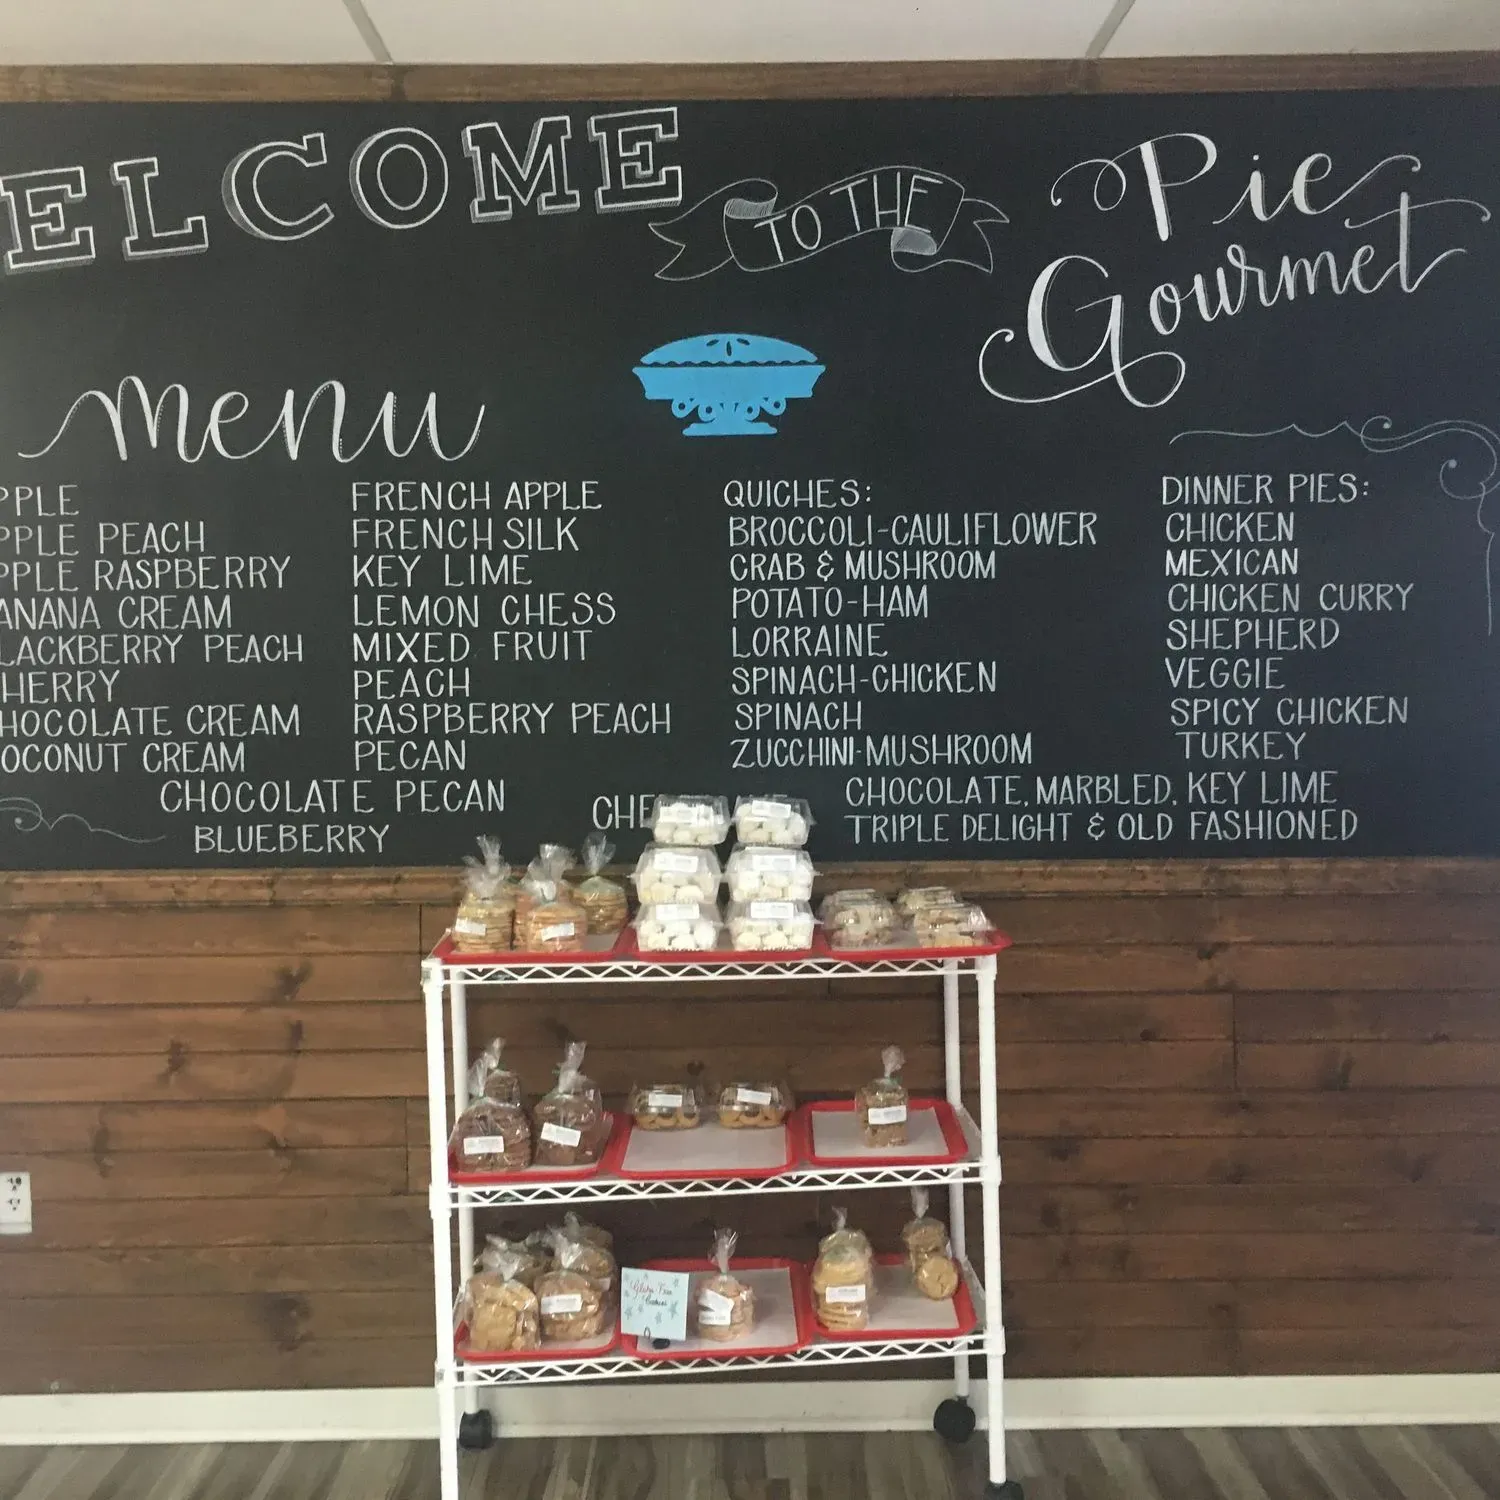 ELCOME
TO THE
Pie
Gourmet
menu
PPLE
PPLE PEACH
PPLE RASPBERRY
ANANA CREAM
LACKBERRY PEACH
HERRY
HOCOLATE CREAM
OCONUT CREAM
CHOCOLATE PECAN
BLUEBERRY
FRENCH APPLE
FRENCH SILK
KEY LIME
LEMON CHESS
MIXED FRUIT
PEACH
RASPBERRY PEACH
PECAN
QUICHES:
BROCCOLI-CAULIFLOWER
CRAB & MUSHROOM
POTATO-HAM
LORRAINE
SPINACH-CHICKEN
SPINACH
ZUCCHINI-MUSHROOM
DINNER PIES:
CHICKEN
MEXICAN
CHICKEN CURRY
SHEPHERD
VEGGIE
SPICY CHICKEN
TURKEY
CHE
CHOCOLATE, MARBLED, KEY LIME
TRIPLE DELIGHT & OLD FASHIONED
Gluten Free
Cookies